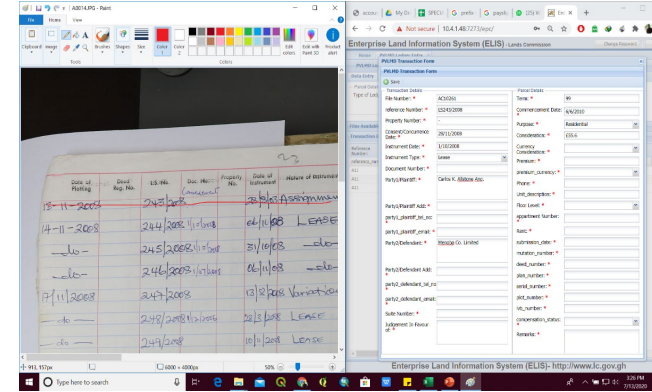 A0014.JPG - Paint
File Home View
Clipboard Image Brushes Shapes Size Color 1 Color 2 Edit colors Edit with Paint 3D Product alert
Tools Colors
23
Date of Plotting Deed Reg. No. LS. No. Doc. No. Property No. Date of Instrument Nature of Instrument
18-11-2008 243/2008 Assignment
14-11-2008 244/2008 06/11/08 LEASE
-do- 245/2008 31/10/08 -do-
-do- 246/2008 06/11/08 -do-
17/11/2008 247/2008 13/8/2008 Variation
-do- 248/2008 28/3/2008 LEASE
-do- 249/2008 10/11/2008 LEASE
913, 157px 6000 × 4000px 50%
Not secure 10.4.1.48:7273/epc/
Enterprise Land Information System (ELIS) - Lands Commission
PVLMD Transaction Form
PVLMD Transaction Form
Save
Transaction Details
File Number: * AC10261
reference Number: * LS243/2008
Property Number: * -
Consent/Concurrence Date: * 28/11/2008
Instrument Date: * 1/10/2008
Instrument Type: * Lease
Document Number: *
Party1/Plaintiff: * Carlos K. Allotone Anc.
Party1/Plaintiff Add: *
party1_plaintiff_tel_no: *
party1_plaintiff_email: *
Party2/Defendant: * Co. Limited
Party2/Defendant Add:
party2_defendant_tel_no *
party2_defendant_email: *
Suite Number: *
Judgement In Favour of: *
Parcel Details
Term: * 99
Commencement Date: * 6/6/2010
Purpose: * Residential
Consideration: *
Currency Consideration: *
Premium: *
premium_currency: *
Phone: *
Unit_description: *
Floor Level: *
appartment Number:
Rent: *
submission_date: *
mutation_number: *
deed_number: *
plan_number: *
serial_number: *
plot_number: *
lvb_number: *
compensation_status: *
Remarks: *
Enterprise Land Information System (ELIS)- http://www.lc.gov.gh
Type here to search
3:26 PM
7/13/2020